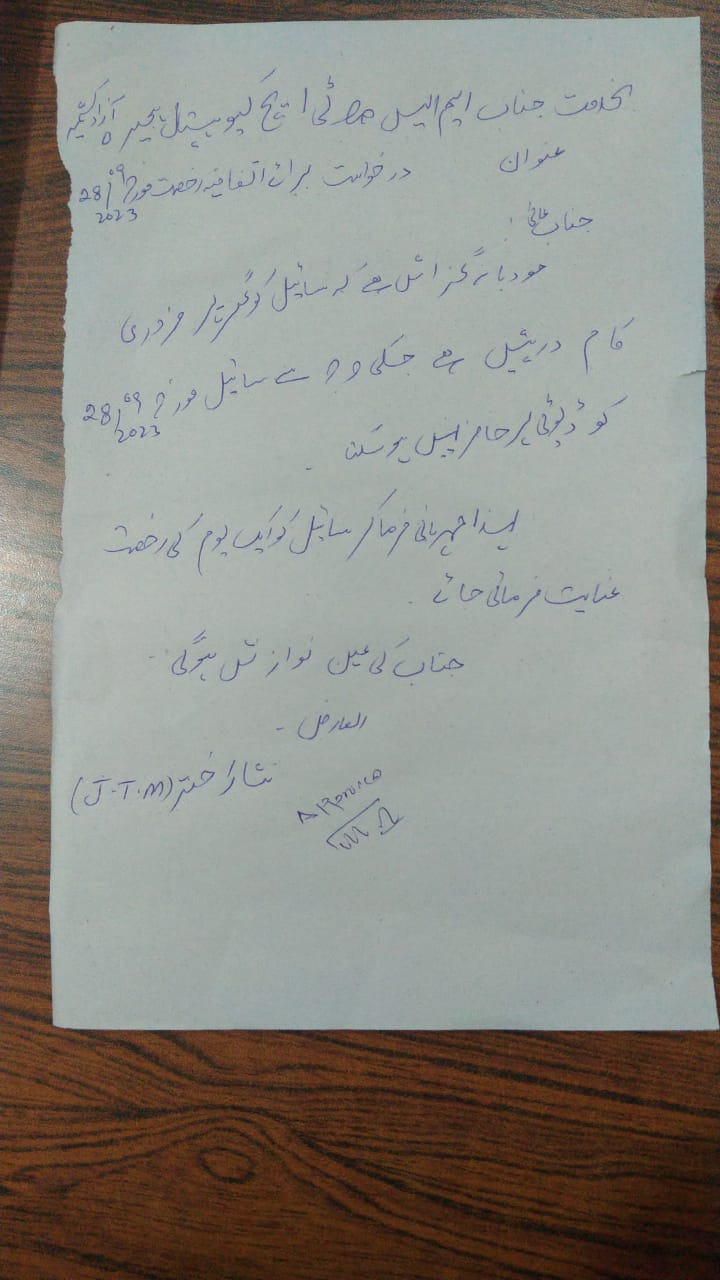 بخدمت جناب ایم ایس ٹی ایچ کیو ہسپتال ہجیرہ آزاد کشمیر
عنوان درخواست برائے اتفاقیہ رخصت مورخہ 28/09/2023
جناب عالی!
مودبانہ گزارش ہے کہ سائیل کو گھریلو ضروری
کام درپیش ہے جسکی وجہ سے سائیل مورخہ 28/09/2023
کو ڈیوٹی پر حاضر نہیں ہو سکتا
لہذا مہربانی فرما کر سائیل کو ایک یوم کی رخصت
عنایت فرمائی جائے۔
جناب کی عین نوازش ہوگی۔
العارض۔
نثار اختر (J.T.M)